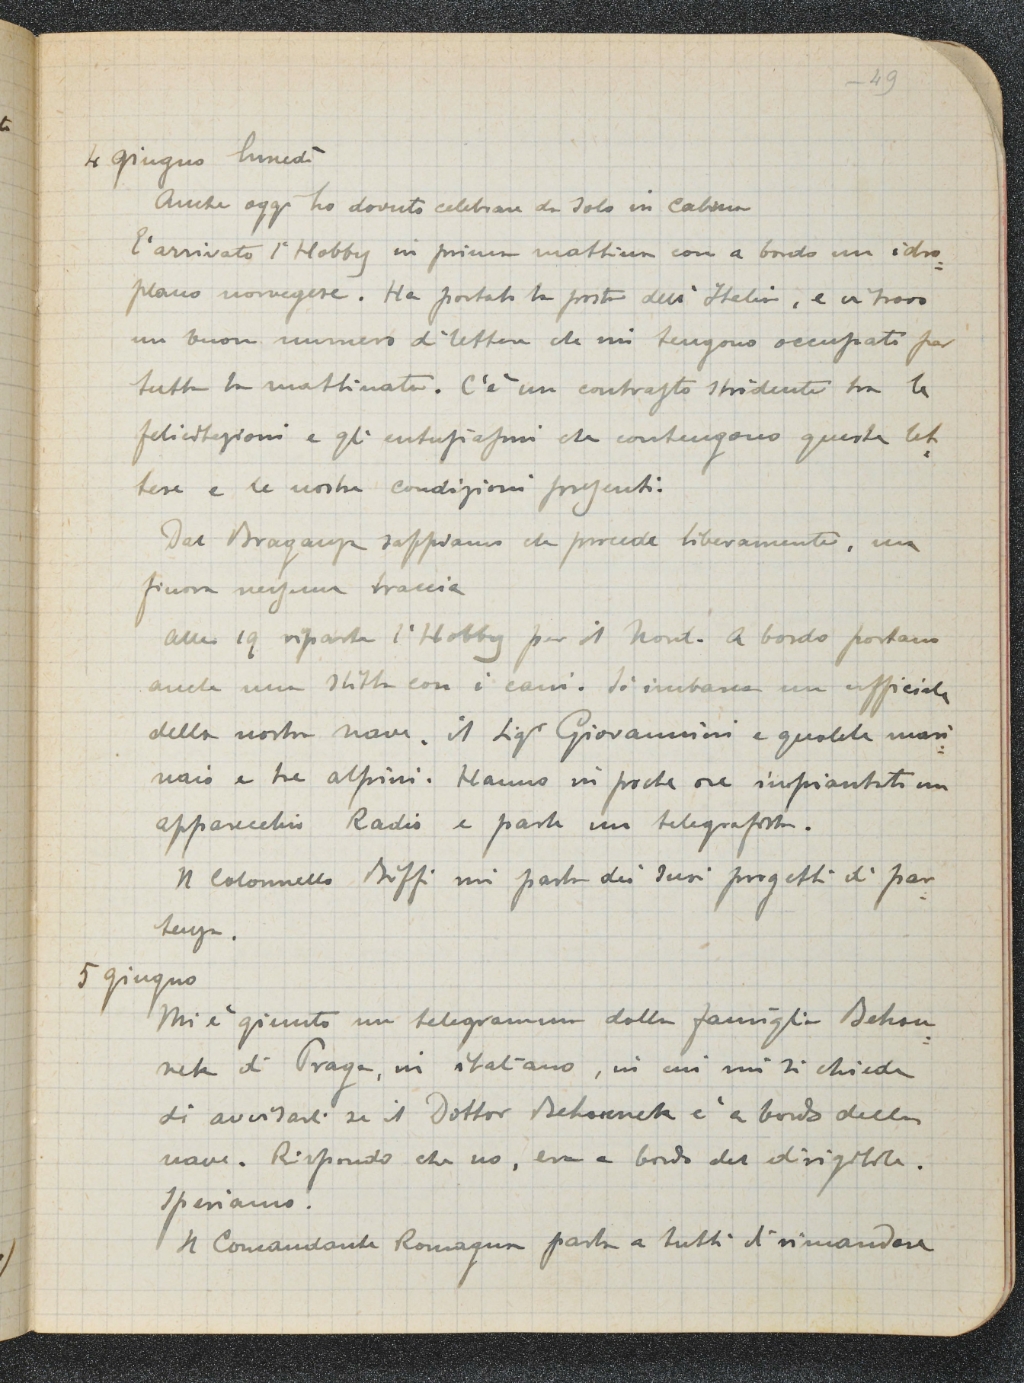 - 49
4 giugno lunedì
Anche oggi ho dovuto celebrare da solo in cabina
E' arrivato l'Hobby in prima mattina con a bordo un idro=
plano norvegese. Ha portato la posta dell'Italia, e vi trovo
un buon numero di lettere che mi tengono occupato per
tutta la mattinata. C'è un contrasto stridente tra le
felicitazioni e gli entusiasmi che contengono queste let=
tere e le nostre condizioni presenti.
Dal Braganza sappiamo che procede liberamente, ma
finora nessuna traccia
Alle 19 riparte l'Hobby per il Nord. A bordo portano
anche una slitta con i cani. Si imbarca un ufficiale
della nostra nave, il Sigr Giovannini e qualche mari=
naio e tre alpini. Hanno in poche ore impiantato un
apparecchio Radio e parte un telegrafista.
Il Colonnello Biffi mi parla dei suoi progetti di par=
tenza.
5 giugno
Mi è giunto un telegramma dalla famiglia Behou=
nek di Praga, in italiano, in cui mi si chiede
di avvisarli se il Dottor Behounek è a bordo della
nave. Rispondo che no, era a bordo del dirigibile.
Speriamo!
Il Comandante Romagna parla a tutti di rimandare